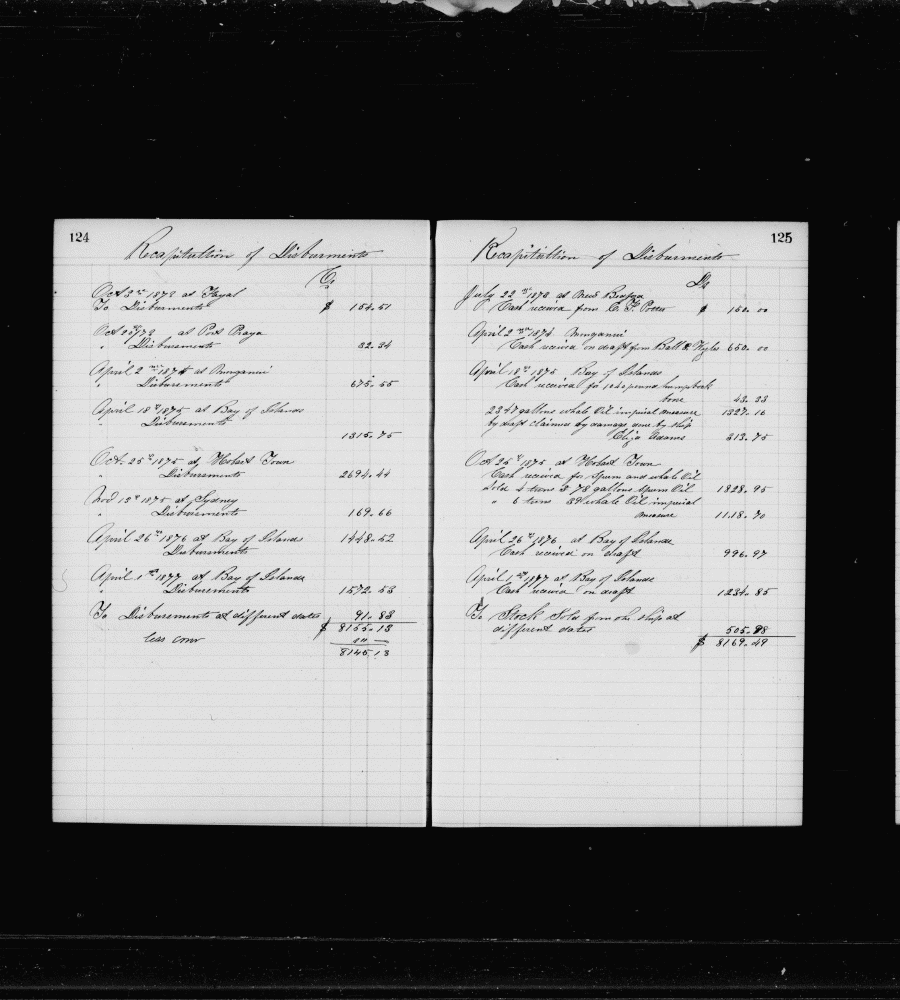 124
Recapitultion of Disburments
Cr
Oct 3rd 1873 at Fayal
To Disburments $ 154.51
at Port Praya
" Disbursments 32.34
April 2nd 1874 at Munganui
" Disbursements 675.55
April 18th 1875 at Bay of Islands
" Disbursments
1315.75
Oct. 25th 1875 at Hobart Town
" Disbursments 2694.44
Nov 13th 1875 at Sydney
" Disbursments 169.66
April 26th 1876 at Bay of Islands 1448.52
Disbursments
April 1st 1877 at Bay of Islands
" Disbursments 1572.53
To Disbursments at different dates 91.83
$ 8155.13
less
8145.13
125
Recapitultion of Disburments
Dr
July 22nd 1873 at New Bedford
Cash received from $ 150.00
April 2nd 1874 Munganui
Cash received on draft from 650.00
April 18th 1875 Bay of Islands
Cash received for 1040 pound humpback
bone 43.33
2347 gallons whale Oil imperial measure 1327.16
by draft claimes by damage done by ship
Eliza Adams 313.75
Oct 25th 1875 at Hobart Town
Cash received for Spum and whale Oil
Sold 4 tuns & 78 gallons Spum Oil 1828.95
" 6 tuns 84 whale Oil imperial
measure 1118.70
April 26th 1876 at Bay of Islands
Cash received on draft 996.97
April 1st 1877 at Bay of Islands
Cash received on draft 1234.85
To Stock Sold from the ship at
different dates 505.78
$ 8169.49